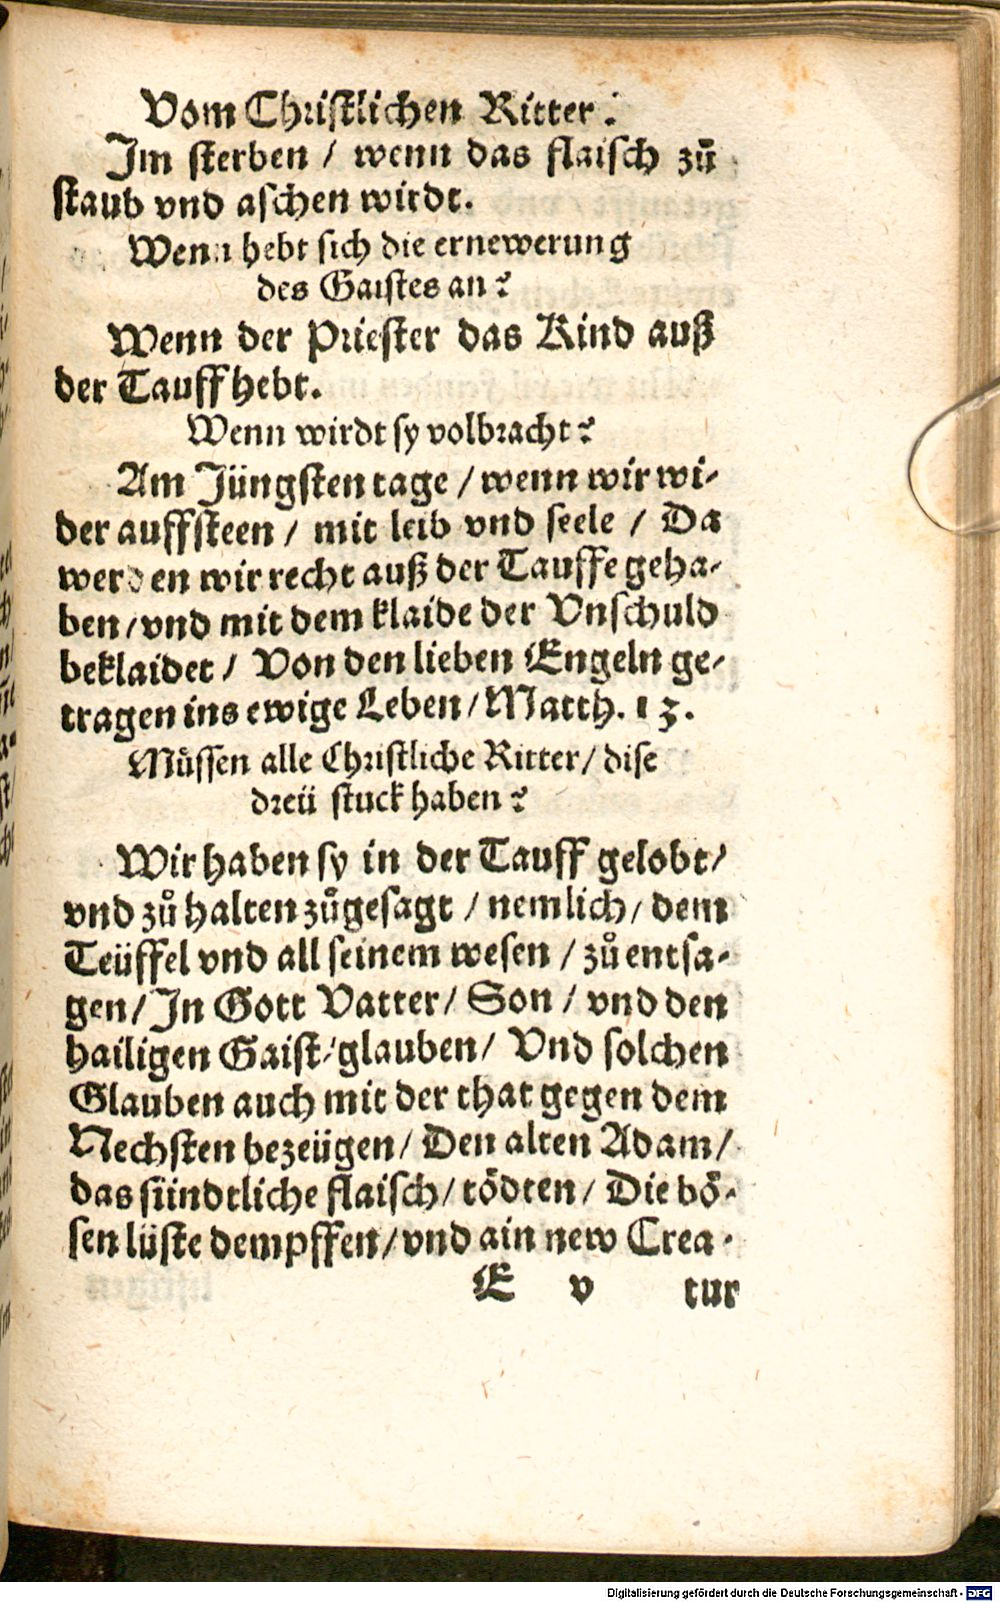 Vom Christlichen Ritter.
Im sterben / wenn das flaisch zů
staub vnd aschen wirdt.
Wenn hebt sich die ernewerung
des Gaistes an?
Wenn der Priester das Kind auß
der Tauff hebt.
Wenn wirdt sy volbracht?
Am Jüngsten tage / wenn wir wi-
der auffsteen / mit leib vnd seele / Da
werden wir recht auß der Tauffe geha-
ben / vnd mit dem klaide der Vnschuld
beklaidet / Von den lieben Engeln ge-
tragen ins ewige Leben / Matth. 13.
Můssen alle Christliche Ritter / dise
dreü stuck haben?
Wir haben sy in der Tauff gelobt /
vnd zů halten zůgesagt / nemlich / dem
Teüffel vnd all seinem wesen / zů entsa-
gen / In Gott Vatter / Son / vnd den
hailigen Gaist / glauben / Vnd solchen
Glauben auch mit der that gegen dem
Nechsten bezeügen / Den alten Adam /
das sündtliche flaisch / tödten / Die bö-
sen lüste dempffen / vnd ain new Crea-
E v tur
Digitalisierung gefördert durch die Deutsche Forschungsgemeinschaft - DFG